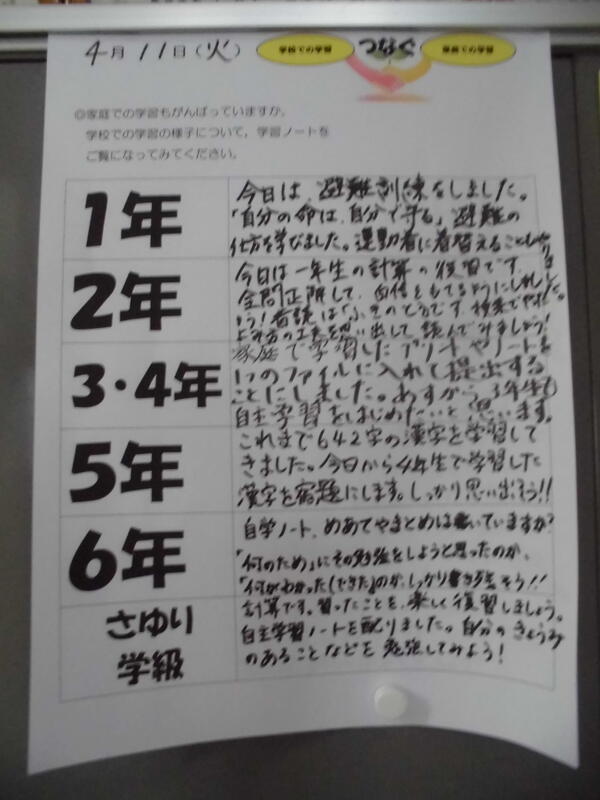 4月11日(火)
学校での学習 つなぐ 家庭での学習
◎家庭での学習もがんばっていますか。
学校での学習の様子について，学習ノートを
ご覧になってみてください。
1年
今日は、避難訓練をしました。
「自分の命は、自分で守る」避難の
仕方を学びました。運動着に着替えることもやりました。
2年
今日は一年生の計算の復習です。
全問正解して、自信をもてるようにしましょ
う！音読は「ふきのとう」です。授業でやった
よみ方の工夫を思い出して、読んでみましょう！
3・4年
家庭で学習したプリントやノートを
1つのファイルに入れて提出する
ことにしました。あすから、3年生も
自主学習をはじめたいと思います。
5年
これまで642字の漢字を学習して
きました。今日から4年生で学習した
漢字を宿題にします。しっかり思い出そう!!
6年
自学ノート、めあてやまとめは書いていますか？
「何のため」にその勉強をしようと思ったのか、
「何がわかった(できた)」のか、しっかり書き残そう!!
さゆり
学級
計算です。習ったことを、楽しく復習しましょう。
自主学習ノートを配りました。自分のきょうみ
のあることなどを勉強してみよう！